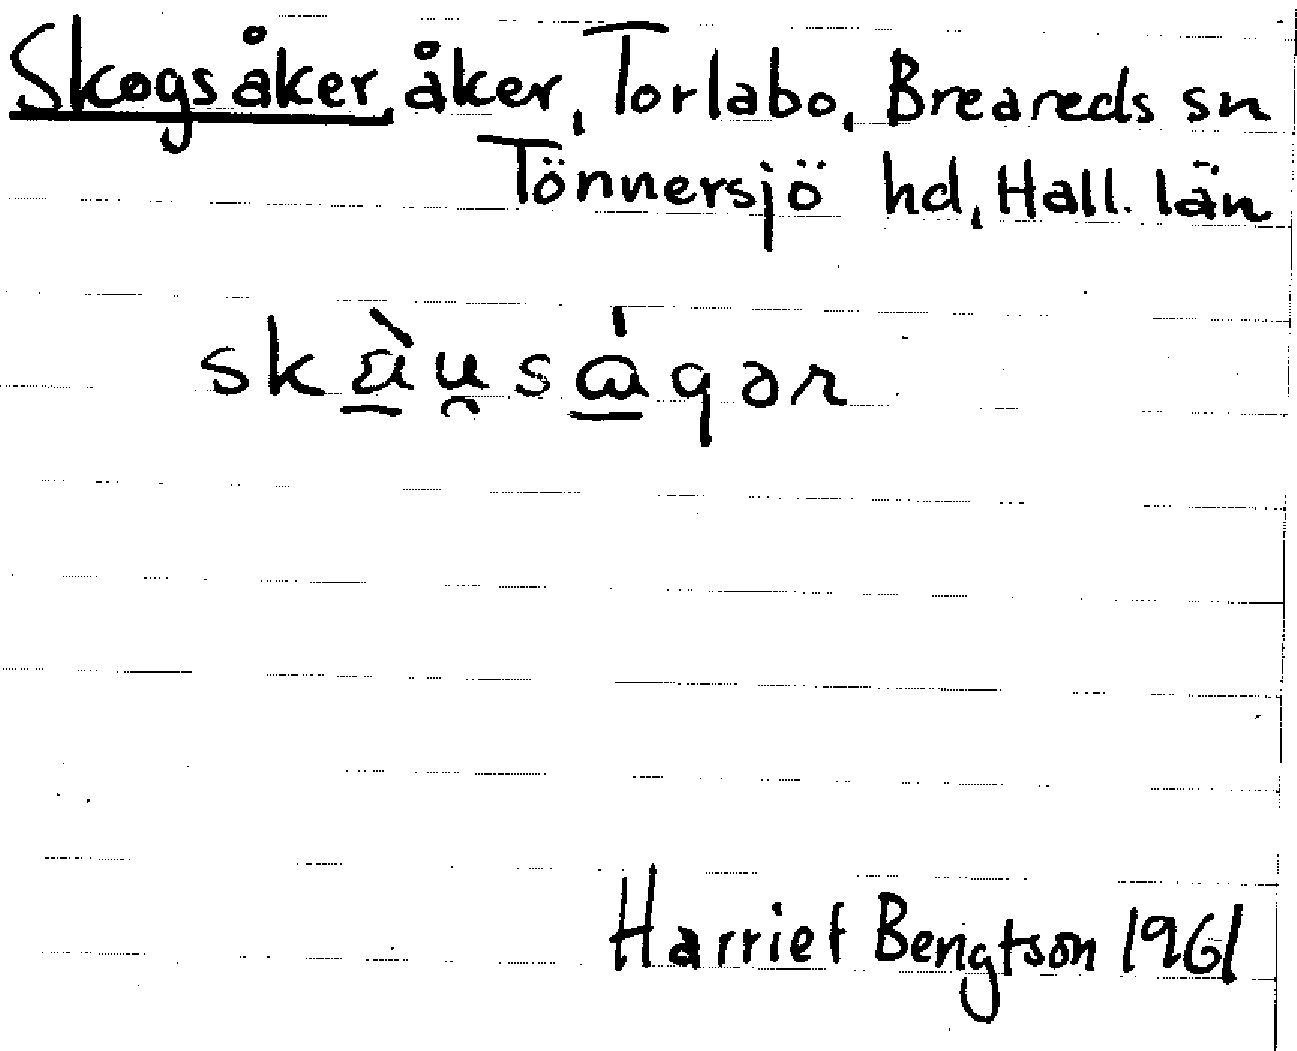 Skogsåker, åker, Torlabo, Breareds sn
Tönnersjö hd, Hall. län
skàu̯ságər
Harriet Bengtson 1961